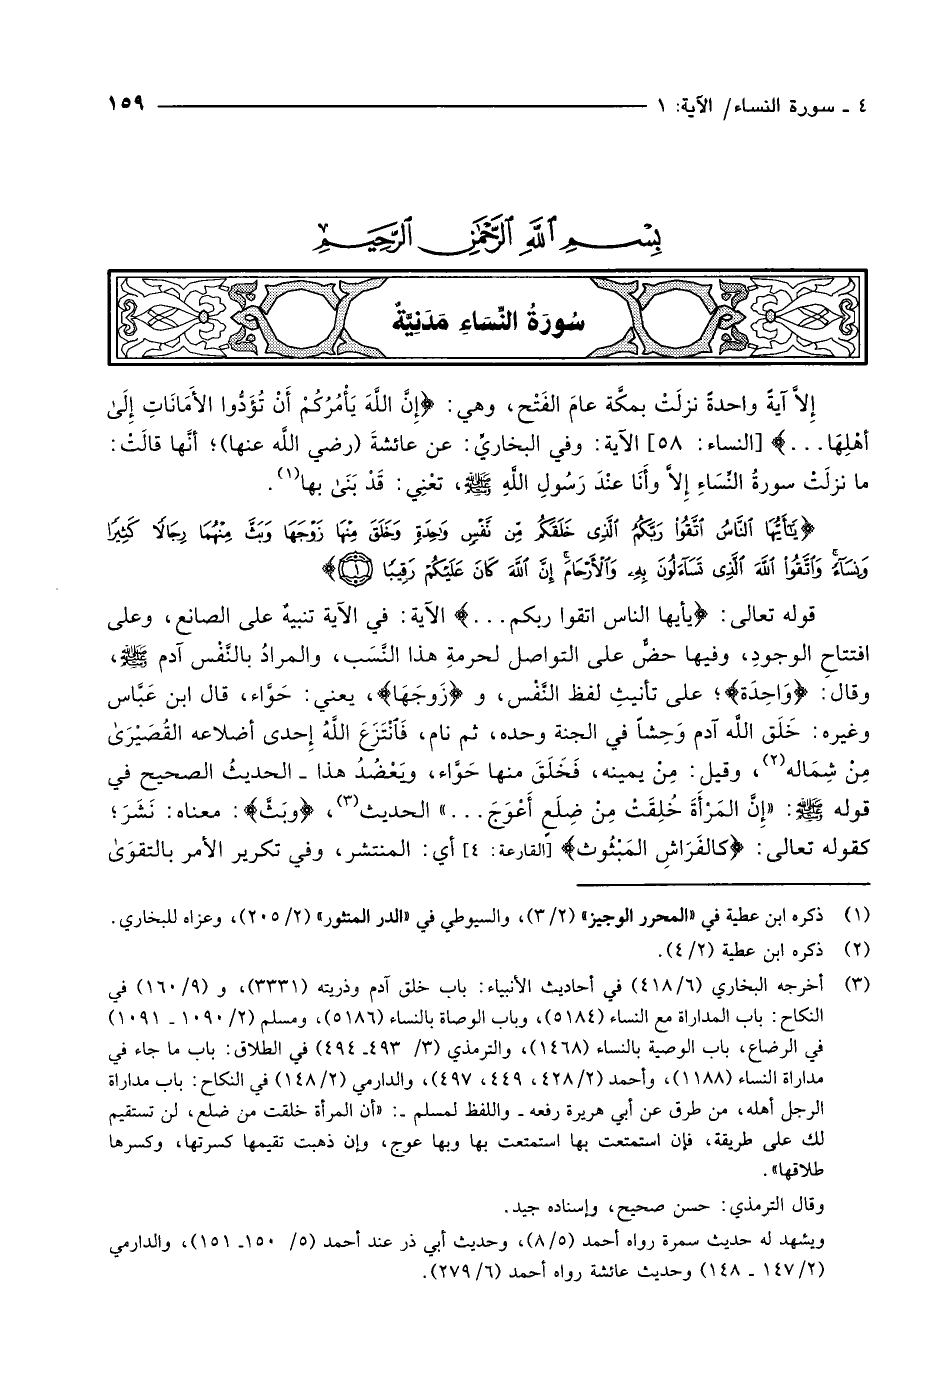 ٤ ـ سورة النساء/ الآية: ١ ١٥٩
بِسْمِ اللَّهِ الرَّحْمَنِ الرَّحِيمِ
سُورَةُ النِّسَاءِ مَدَنِيَّةٌ
إلاَّ آيةً واحدةً نزلَتْ بمكَّة عامَ الفَتْح، وهي: ﴿إنَّ اللَّهَ يَأْمُرُكُمْ أَنْ تُؤَدُّوا الأَمَانَاتِ إِلَىٰ
أَهْلِهَا...﴾ [النساء: ٥٨] الآية: وفي البخاريِّ: عن عائشةَ (رضي اللَّه عنها)؛ أنَّها قالَتْ:
ما نزلَتْ سورةُ النِّسَاءِ إلاَّ وأَنَا عنْدَ رَسُولِ اللَّهِ ﷺ، تعْنِي: قَدْ بَنَىٰ بها(١).
﴿يَٰٓأَيُّهَا النَّاسُ ٱتَّقُوا۟ رَبَّكُمُ ٱلَّذِى خَلَقَكُم مِّن نَّفْسٍ وَٰحِدَةٍ وَخَلَقَ مِنْهَا زَوْجَهَا وَبَثَّ مِنْهُمَا رِجَالًا كَثِيرًا
وَنِسَآءً ۚ وَٱتَّقُوا۟ ٱللَّهَ ٱلَّذِى تَسَآءَلُونَ بِهِۦ وَٱلْأَرْحَامَ ۚ إِنَّ ٱللَّهَ كَانَ عَلَيْكُمْ رَقِيبًا ١﴾
قوله تعالى: ﴿يأيها الناس اتقوا ربكم...﴾ الآية: في الآية تنبيهٌ على الصانع، وعلى
افتتاحِ الوجودِ، وفيها حضٌّ على التواصل لحرمةِ هذا النَّسَب، والمرادُ بالنَّفْس آدم ﷺ،
وقال: ﴿وَاحِدَة﴾؛ على تأنيثِ لفظ النَّفْس، و ﴿زَوجَهَا﴾، يعني: حَوَّاء، قال ابن عَبَّاس
وغيره: خَلَق اللَّه آدم وَحِشاً في الجنة وحده، ثم نام، فَٱنْتَزَعَ اللَّهُ إحدى أضلاعه القُصَيْرَىٰ
مِنْ شِمَاله(٢)، وقيل: مِنْ يمينه، فَخَلَقَ منها حَوَّاء، ويَعْضُدُ هذا ـ الحديثُ الصحيح في
قوله ﷺ: «إنَّ المَرْأَةَ خُلِقَتْ مِنْ ضِلَعِ أَعْوَجَ...» الحديث(٣)، ﴿وبَثَّ﴾: معناه: نَشَرَ؛
كقوله تعالى: ﴿كالفَرَاشِ المَبْثُوث﴾ [القارعة: ٤] أي: المنتشر، وفي تكرير الأمر بالتقوَىٰ
(١) ذكره ابن عطية في «المحرر الوجيز» (٣/٢)، والسيوطي في «الدر المنثور» (٢٠٥/٢)، وعزاه للبخاري.
(٢) ذكره ابن عطية (٤/٢).
(٣) أخرجه البخاري (٤١٨/٦) في أحاديث الأنبياء: باب خلق آدم وذريته (٣٣٣١)، و (١٦٠/٩) في
النكاح: باب المداراة مع النساء (٥١٨٤)، وباب الوصاة بالنساء (٥١٨٦)، ومسلم (١٠٩٠/٢ ـ ١٠٩١)
في الرضاع، باب الوصية بالنساء (١٤٦٨)، والترمذي (٣/ ٤٩٣ـ ٤٩٤) في الطلاق: باب ما جاء في
مداراة النساء (١١٨٨)، وأحمد (٤٢٨/٢، ٤٤٩، ٤٩٧)، والدارمي (١٤٨/٢) في النكاح: باب مداراة
الرجل أهله، من طرق عن أبي هريرة رفعه ـ واللفظ لمسلم ـ: «أن المرأة خلقت من ضلع، لن تستقيم
لك على طريقة، فإن استمتعت بها استمتعت بها وبها عوج، وإن ذهبت تقيمها كسرتها، وكسرها
طلاقها».
وقال الترمذي: حسن صحيح، وإسناده جيد.
ويشهد له حديث سمرة رواه أحمد (٨/٥)، وحديث أبي ذر عند أحمد (٥/ ١٥٠ـ ١٥١)، والدارمي
(١٤٧/٢ ـ ١٤٨) وحديث عائشة رواه أحمد (٢٧٩/٦).